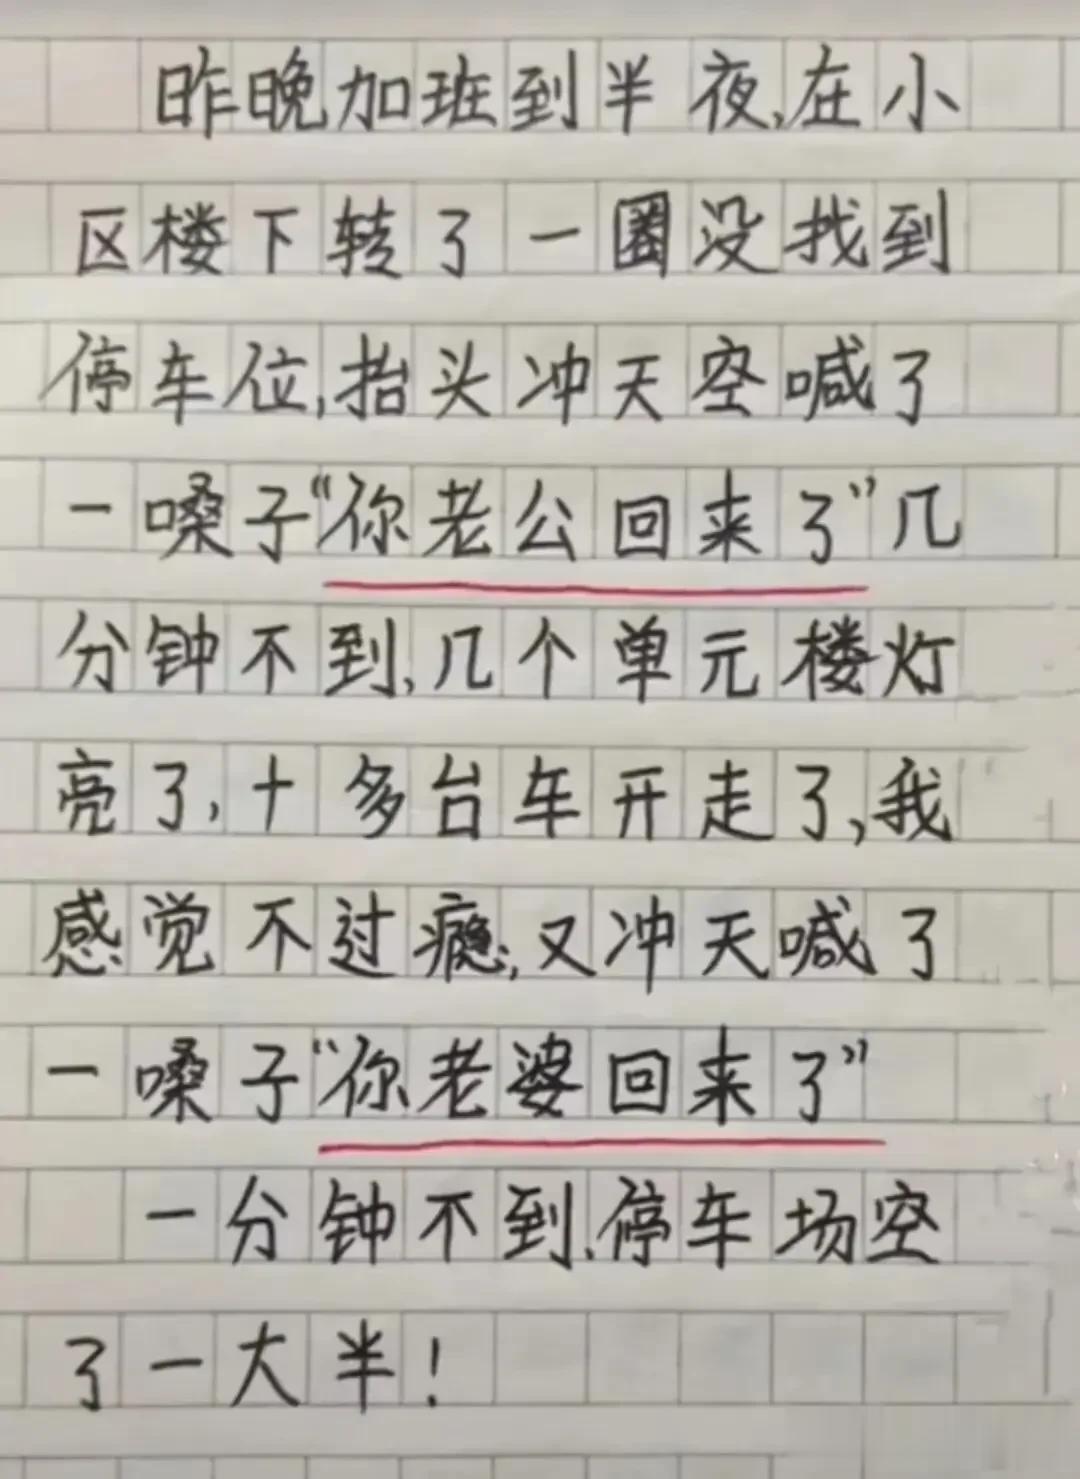 昨晚加班到半夜,在小
区楼下转了一圈没找到
停车位,抬头冲天空喊了
一嗓子“你老公回来了”几
分钟不到,几个单元楼灯
亮了,十多台车开走了,我
感觉不过瘾,又冲天喊了
一嗓子“你老婆回来了”
一分钟不到,停车场空
了一大半!